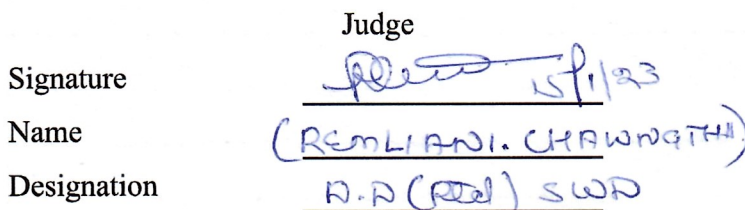 Judge
Signature 15/1/23
Name (REMLIANI. CHAWNGTHU)
Designation D.D (Rtd) SWD